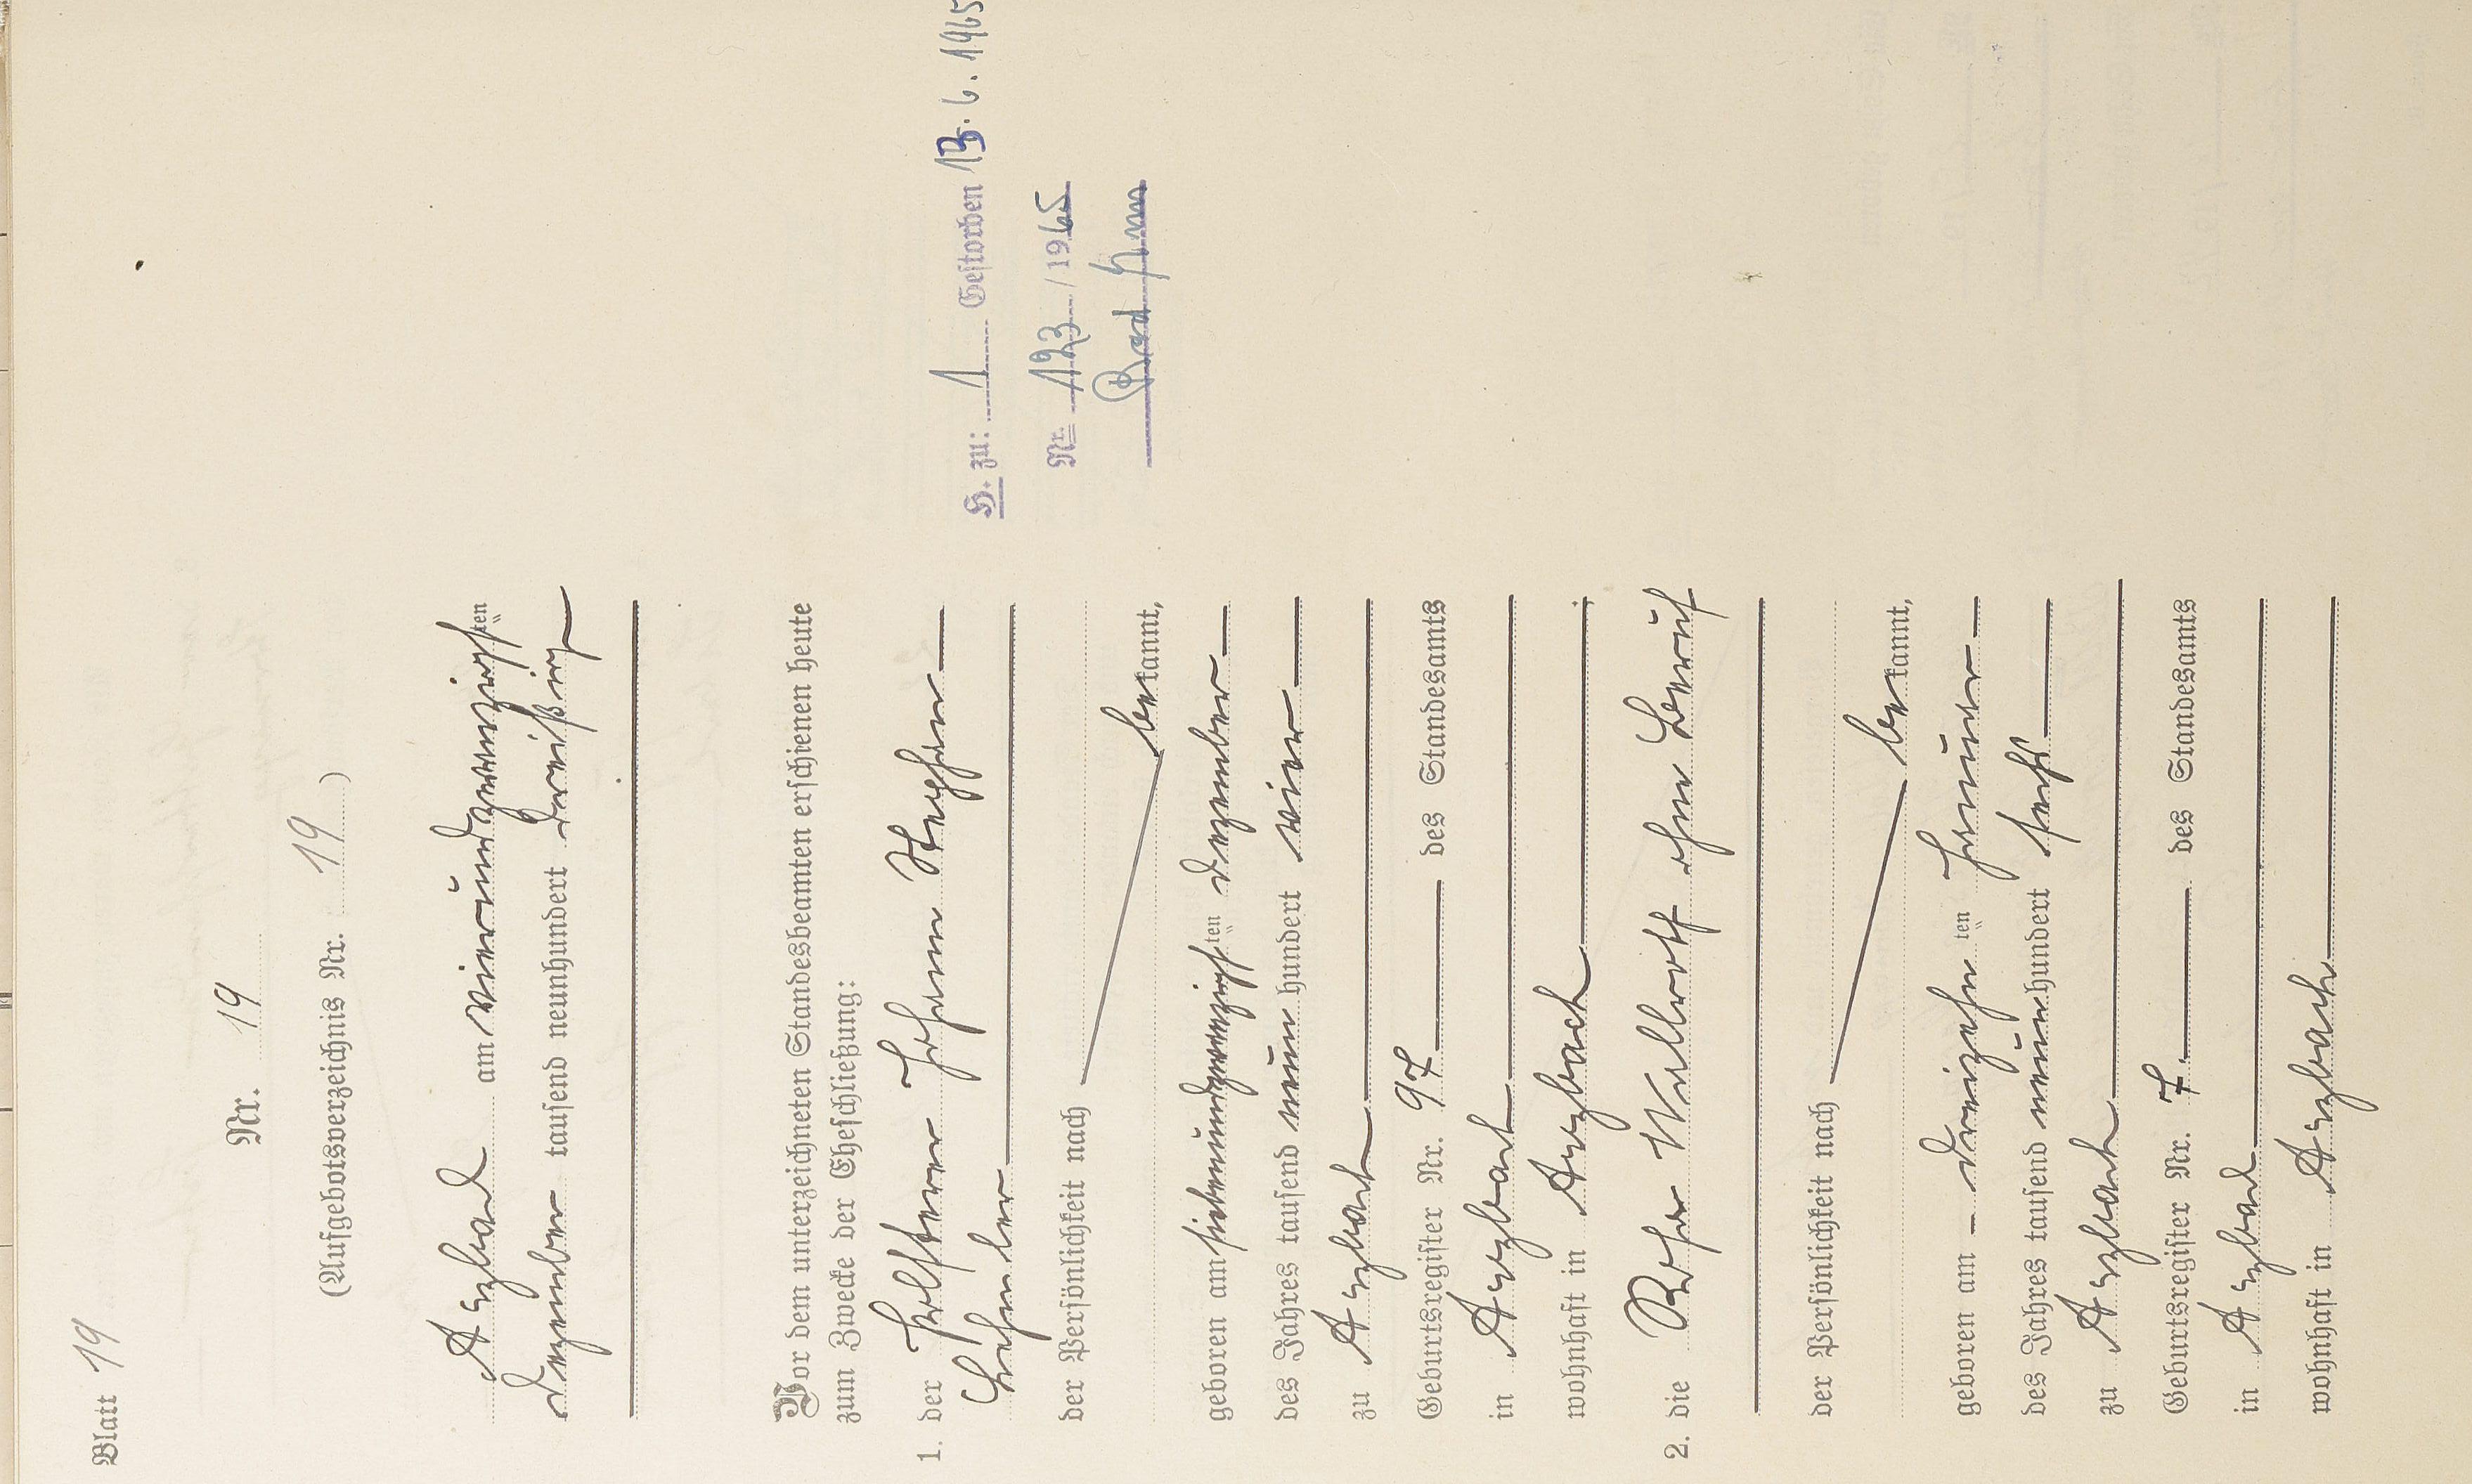 Blatt 19
Nr. 19
(Aufgebotsverzeichnis Nr. 19)
Arzbach am vierundzwanzigsten
Dezember tausend neunhundert dreißig
Vor dem unterzeichneten Standesbeamten erschienen heute
zum Zwecke der Eheschließung:
1. der Johann Stephan
der Persönlichkeit nach
bekannt,
geboren am siebenundzwanzigsten Dezember
des Jahres tausend neunhundert vier
zu Arzbach
Geburtsregister Nr. 97. des Standesamts
in Arzbach
wohnhaft in Arzbach;
2. die ohne Beruf
der Persönlichkeit nach
bekannt,
geboren am dreizehnten Januar
des Jahres tausend neunhundert sechs
zu Arzbach
Geburtsregister Nr. 7. des Standesamts
in Arzbach
wohnhaft in Arzbach
H. zu: 1 Gestorben 13.6.1965
Nr. 123/1965
Bad Ems